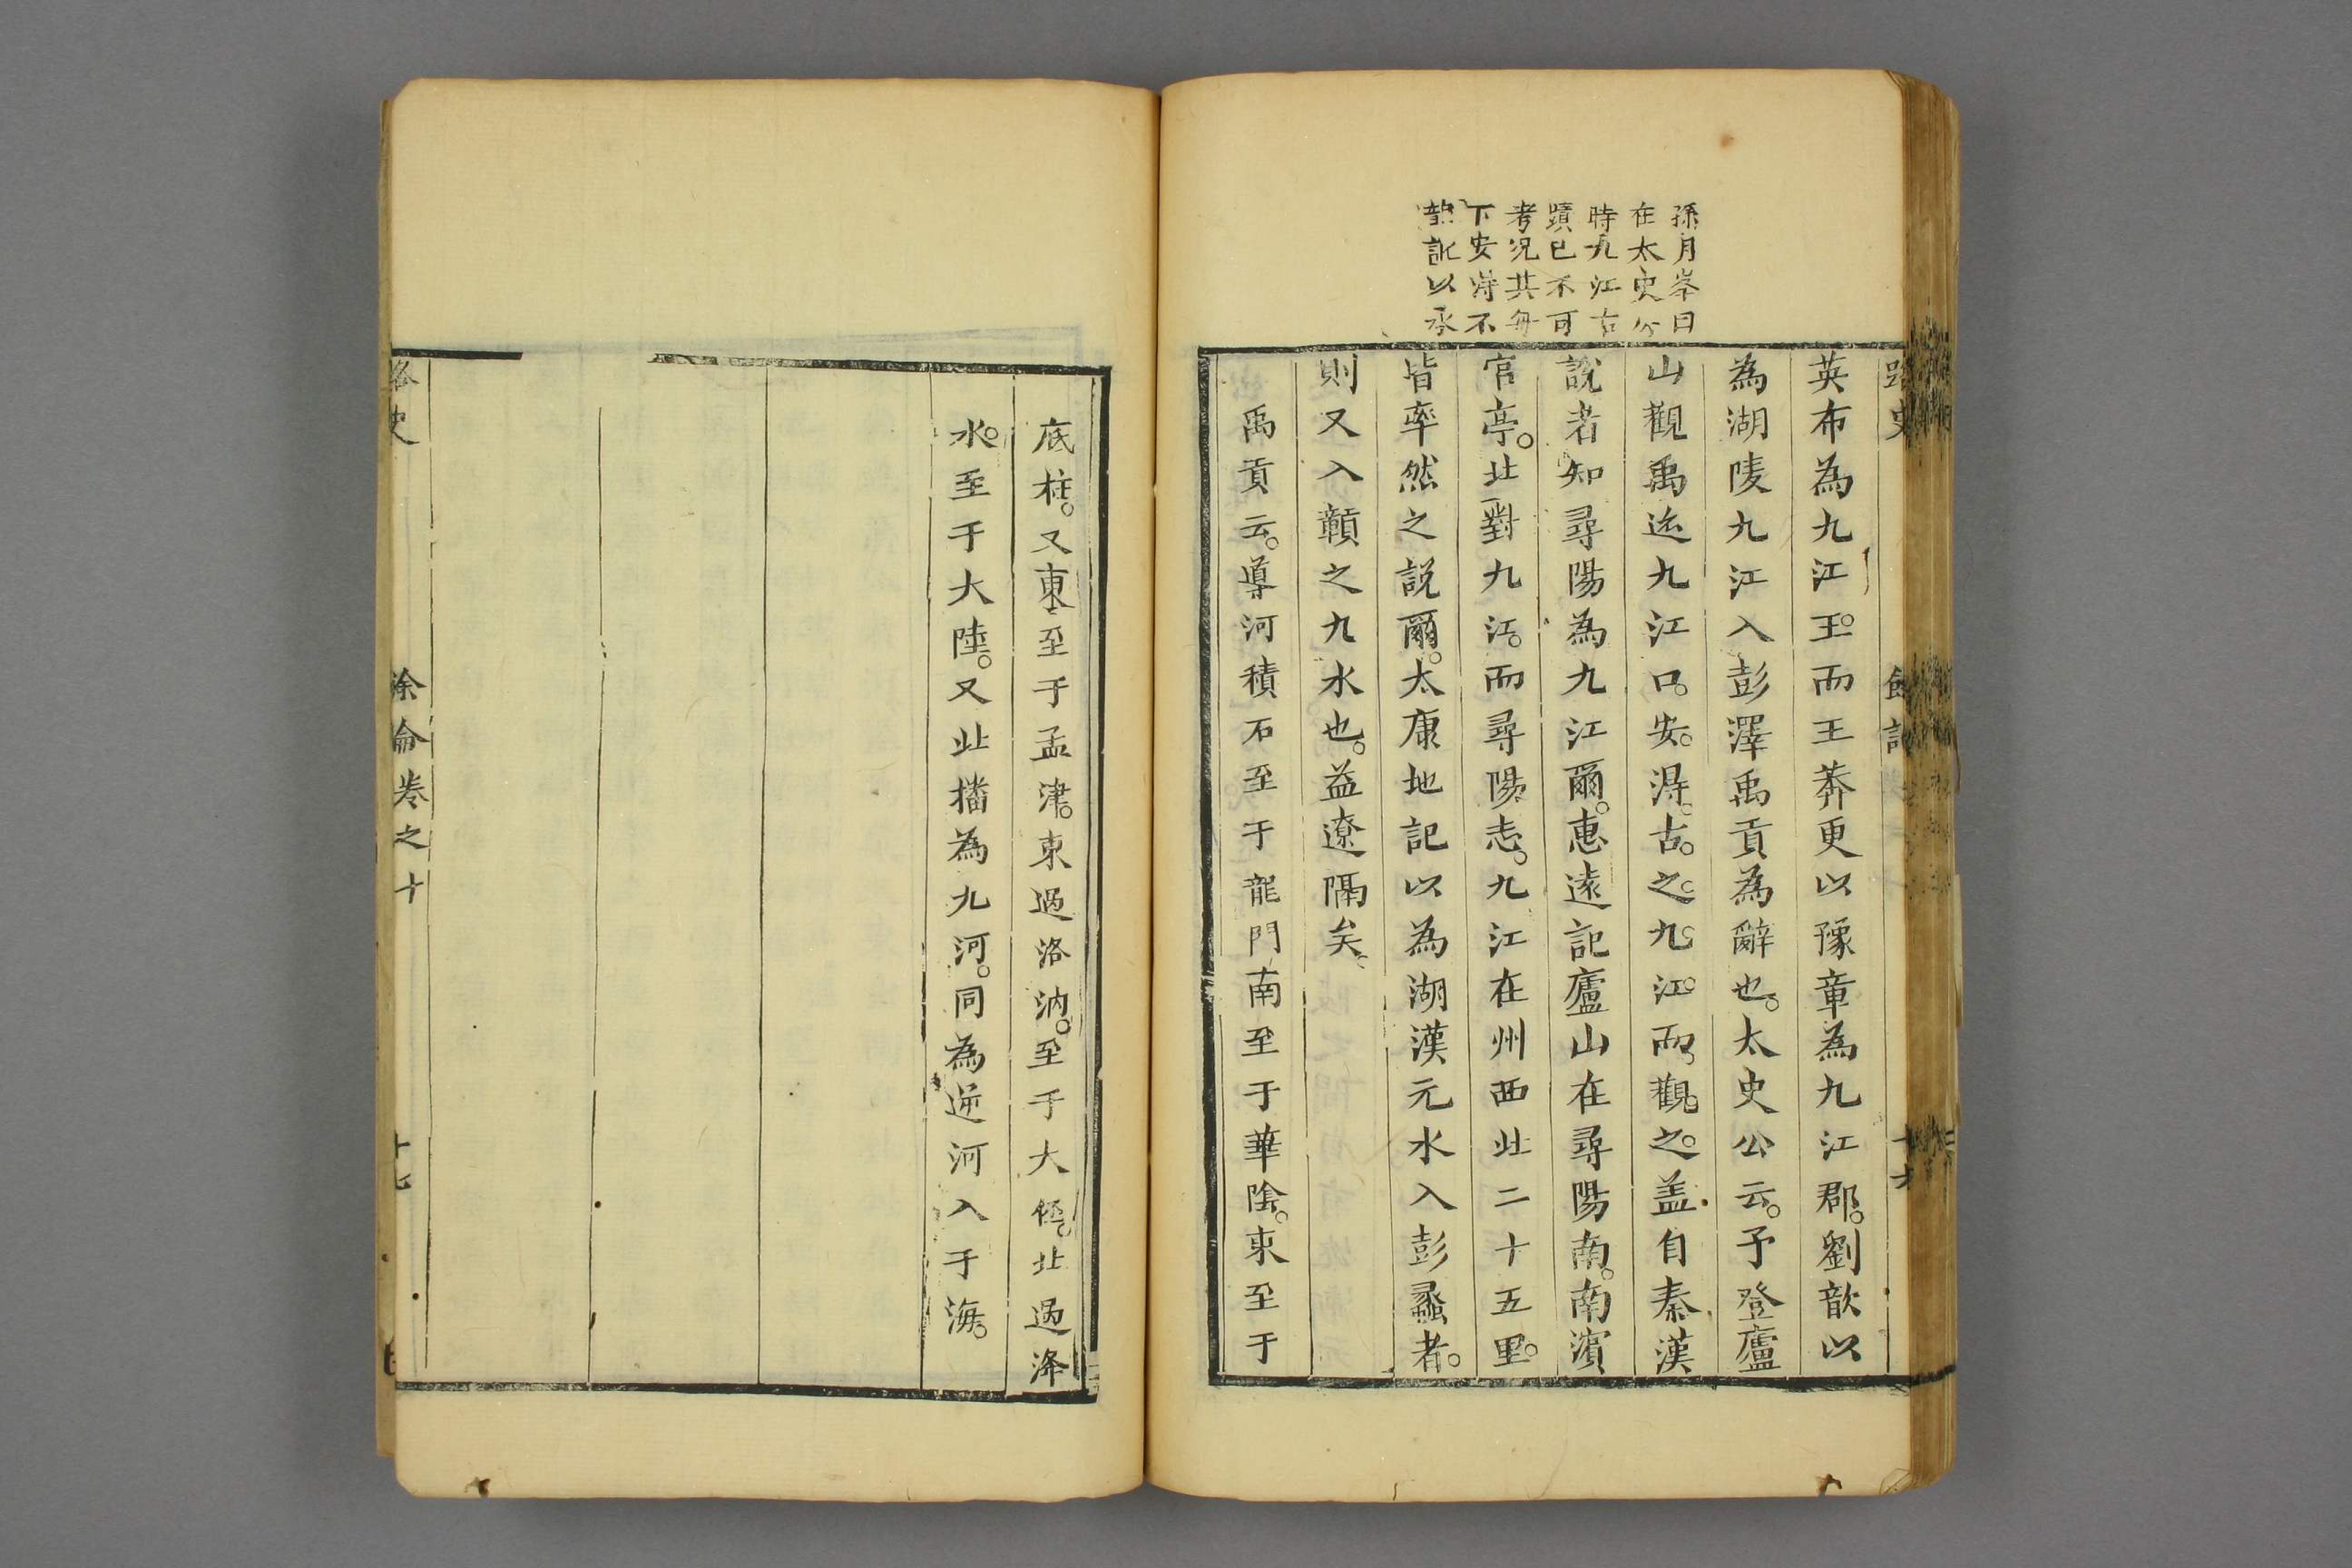 孫月峯曰
在太史公
時九江古
蹟已不可
考况其毎
下安得不
訛以承
英布為九江王而王莽更以豫章為九江郡劉歆以
為湖陵九江入彭澤禹貢為辭也太史公云予登廬
山觀禹迹九江口安淂古之九江而觀之盖自秦漢
說者知尋陽為九江爾惠遠記廬山在尋陽南南濱
官亭北對九江而尋陽志九江在州西北二十五里
皆率然之說爾太康地記以為湖漢元水入彭蠡者
則又入贑之九水也益遼隔矣
禹貢云導河積石至于龍門南至于華陰東至于
底柱又東至于孟津東過洛汭至于大伾北過洚
水至于大陸又北播為九河同為逆河入于海
路史
餘論卷之十
十七